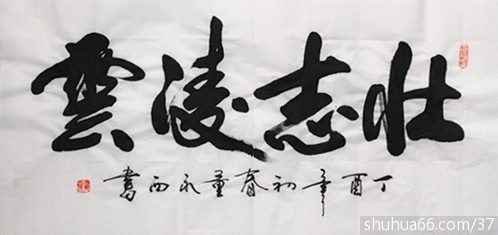 壮志凌雲
丁酉年初春董永西書
shuhua66.com/37